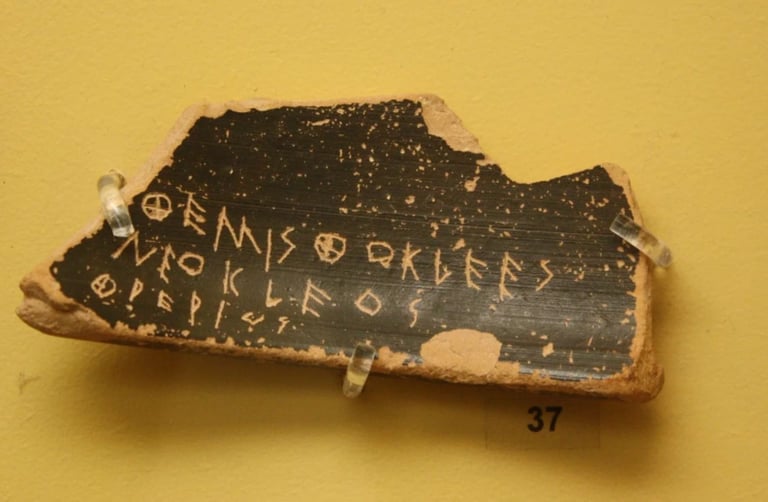 ΘΕΜΙΣΘΟΚΛΕΕΣ
ΝΕΟΚΛΕΟΣ
ΦΡΕΡΙΟΣ
37